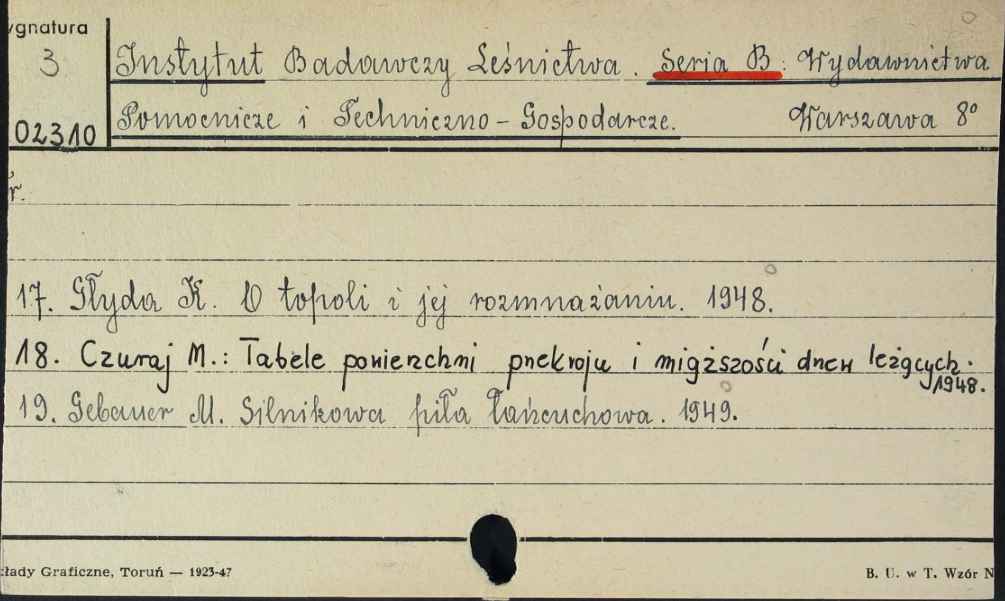 ygnatura
3
02310
Instytut Badawczy Leśnictwa. Seria B: Wydawnictwa
Pomocnicze i Techniczno-Gospodarcze. Warszawa 8°
r.
17. Głyda K. O topoli i jej rozmnażaniu. 1948.
18. Czuraj M.: Tabele powierzchni przekroju i miąższości drzew leżących.
1948.
19. Gebauer M. Silnikowa piła łańcuchowa. 1949.
łady Graficzne, Toruń — 1923-47
B. U. w T. Wzór N